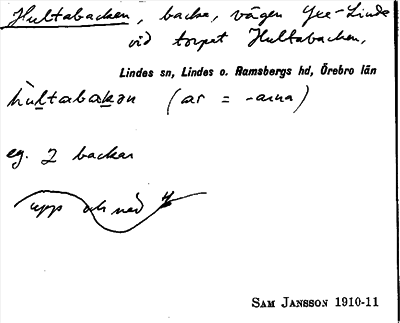 Hultabacken, backe, vägen Gee-Linde
vid torpet Hultabacken,
Lindes sn, Lindes o. Ramsbergs hd, Örebro län
hultabakən (ar = -arna)
eg. 2 backar
upp och ned
SAM JANSSON 1910-11